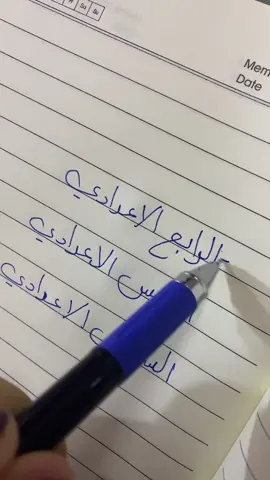 Mem
Date
-الرابع الاعدادي
الاعدادي
الاعدادي